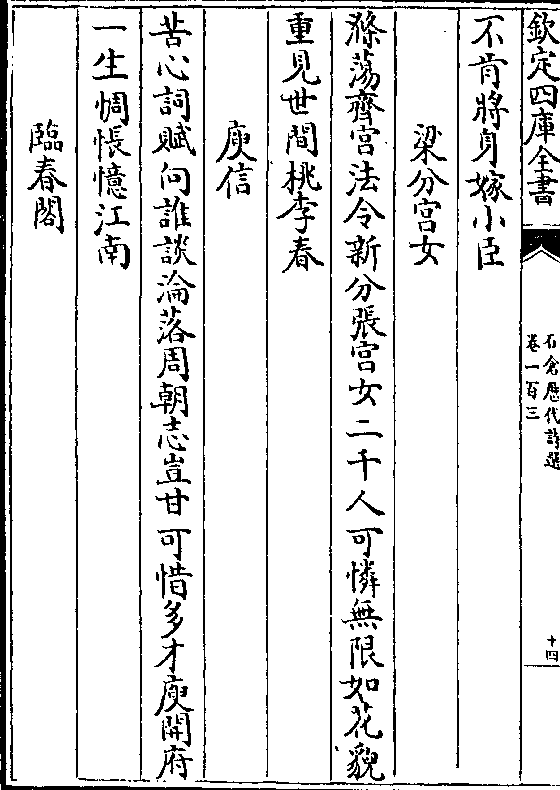 欽定四庫全書
石倉歷代詩選
卷一百三
十四
不肯將身嫁小臣
梁分宮女
滌蕩齊宮法令新分張宮女二千人可憐無限如花貌
重見世間桃李春
庾信
苦心詞賦向誰談淪落周朝志豈甘可惜多才庾開府
一生惆悵憶江南
臨春閣